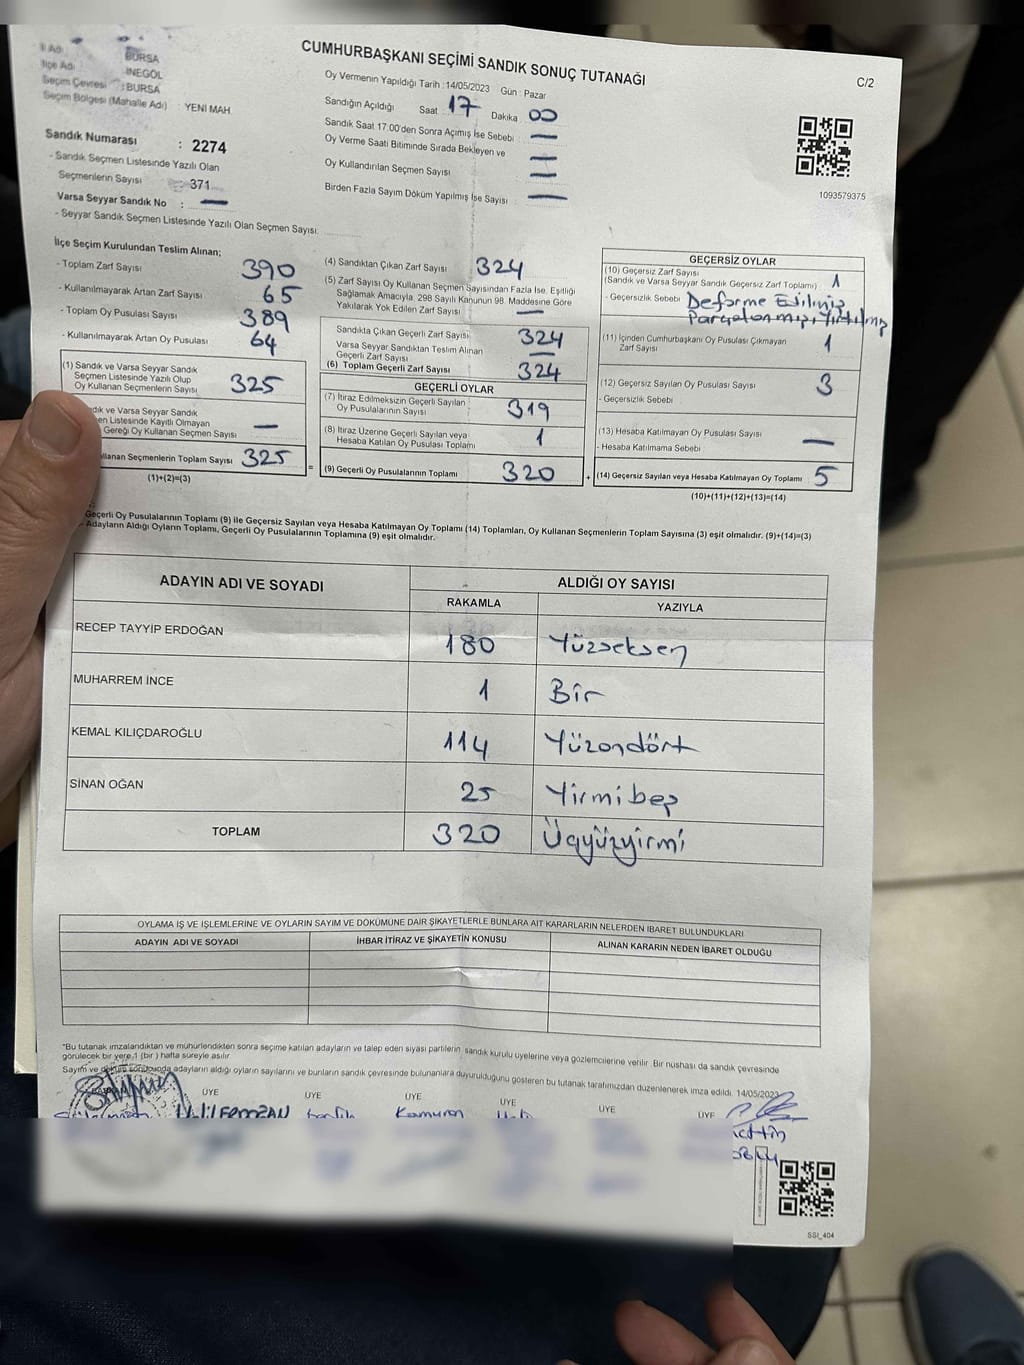 İl Adı : BURSA
İlçe Adı : İNEGÖL
Seçim Çevresi : BURSA
Seçim Bölgesi (Mahalle Adı) : YENİ MAH
Sandık Numarası : 2274
- Sandık Seçmen Listesinde Yazılı Olan
Seçmenlerin Sayısı 371
Varsa Seyyar Sandık No : —
- Seyyar Sandık Seçmen Listesinde Yazılı Olan Seçmen Sayısı:
CUMHURBAŞKANI SEÇİMİ SANDIK SONUÇ TUTANAĞI
C/2
Oy Vermenin Yapıldığı Tarih : 14/05/2023 Gün : Pazar
Sandığın Açıldığı Saat 17 Dakika 00
Sandık Saat 17:00'den Sonra Açımış İse Sebebi —
Oy Verme Saati Bitiminde Sırada Bekleyen ve —
Oy Kullandırılan Seçmen Sayısı —
Birden Fazla Sayım Döküm Yapılmış İse Sayısı —
1093579375
İlçe Seçim Kurulundan Teslim Alınan;
- Toplam Zarf Sayısı 390
- Kullanılmayarak Artan Zarf Sayısı 65
- Toplam Oy Pusulası Sayısı 389
- Kullanılmayarak Artan Oy Pusulası 64
(1) Sandık ve Varsa Seyyar Sandık
Seçmen Listesinde Yazılı Olup
Oy Kullanan Seçmenlerin Sayısı 325
ve Varsa Seyyar Sandık
Listesinde Kayıtlı Olmayan
Gereği Oy Kullanan Seçmen Sayısı —
Seçmenlerin Toplam Sayısı 325
(1)+(2)=(3)
(4) Sandıktan Çıkan Zarf Sayısı 324
(5) Zarf Sayısı Oy Kullanan Seçmen Sayısından Fazla İse, Eşitliği
Sağlamak Amacıyla, 298 Sayılı Kanunun 98. Maddesine Göre
Yakılarak Yok Edilen Zarf Sayısı —
Sandıkta Çıkan Geçerli Zarf Sayısı 324
Varsa Seyyar Sandıktan Teslim Alınan
Geçerli Zarf Sayısı —
(6) Toplam Geçerli Zarf Sayısı 324
GEÇERLİ OYLAR
(7) İtiraz Edilmeksizin Geçerli Sayılan
Oy Pusulalarının Sayısı 319
(8) İtiraz Üzerine Geçerli Sayılan veya
Hesaba Katılan Oy Pusulası Toplamı 1
= (9) Geçerli Oy Pusulalarının Toplamı 320
GEÇERSİZ OYLAR
(10) Geçersiz Zarf Sayısı
(Sandık ve Varsa Seyyar Sandık Geçersiz Zarf Toplamı) 1
- Geçersizlik Sebebi Deforme Edilmiş
Parçalanmış, Yırtılmış
(11) İçinden Cumhurbaşkanı Oy Pusulası Çıkmayan
Zarf Sayısı 1
(12) Geçersiz Sayılan Oy Pusulası Sayısı 3
- Geçersizlik Sebebi
(13) Hesaba Katılmayan Oy Pusulası Sayısı —
- Hesaba Katılmama Sebebi
+ (14) Geçersiz Sayılan veya Hesaba Katılmayan Oy Toplamı 5
(10)+(11)+(12)+(13)=(14)
Geçerli Oy Pusulalarının Toplamı (9) ile Geçersiz Sayılan veya Hesaba Katılmayan Oy Toplamı (14) Toplamları, Oy Kullanan Seçmenlerin Toplam Sayısına (3) eşit olmalıdır. (9)+(14)=(3)
- Adayların Aldığı Oyların Toplamı, Geçerli Oy Pusulalarının Toplamına (9) eşit olmalıdır.
ADAYIN ADI VE SOYADI ALDIĞI OY SAYISI
RAKAMLA YAZIYLA
RECEP TAYYİP ERDOĞAN 180 Yüzseksen
MUHARREM İNCE 1 Bir
KEMAL KILIÇDAROĞLU 114 Yüzondört
SİNAN OĞAN 25 Yirmibeş
TOPLAM 320 Üçyüzyirmi
OYLAMA İŞ VE İŞLEMLERİNE VE OYLARIN SAYIM VE DÖKÜMÜNE DAİR ŞİKAYETLERLE BUNLARA AİT KARARLARIN NELERDEN İBARET BULUNDUKLARI
ADAYIN ADI VE SOYADI İHBAR İTİRAZ VE ŞİKAYETİN KONUSU ALINAN KARARIN NEDEN İBARET OLDUĞU
*Bu tutanak imzalandıktan ve mühürlendikten sonra seçime katılan adayların ve talep eden siyasi partilerin sandık kurulu üyelerine veya gözlemcilerine verilir. Bir nüshası da sandık çevresinde
görülecek bir yere 1 (bir) hafta süreyle asılır.
Sayım ve döküm sonucunda adayların aldığı oyların sayılarını ve bunların sandık çevresinde bulunanlara duyurulduğunu gösteren bu tutanak tarafımızdan düzenlenerek imza edildi. 14/05/2023
ÜYE ÜYE ÜYE ÜYE ÜYE ÜYE
Kamuran
SSI_404